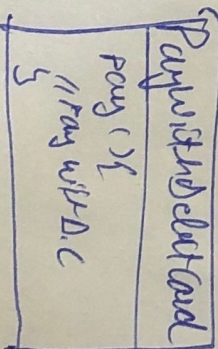 PaywithDebitCard
pay(){
//Pay with D.C
}